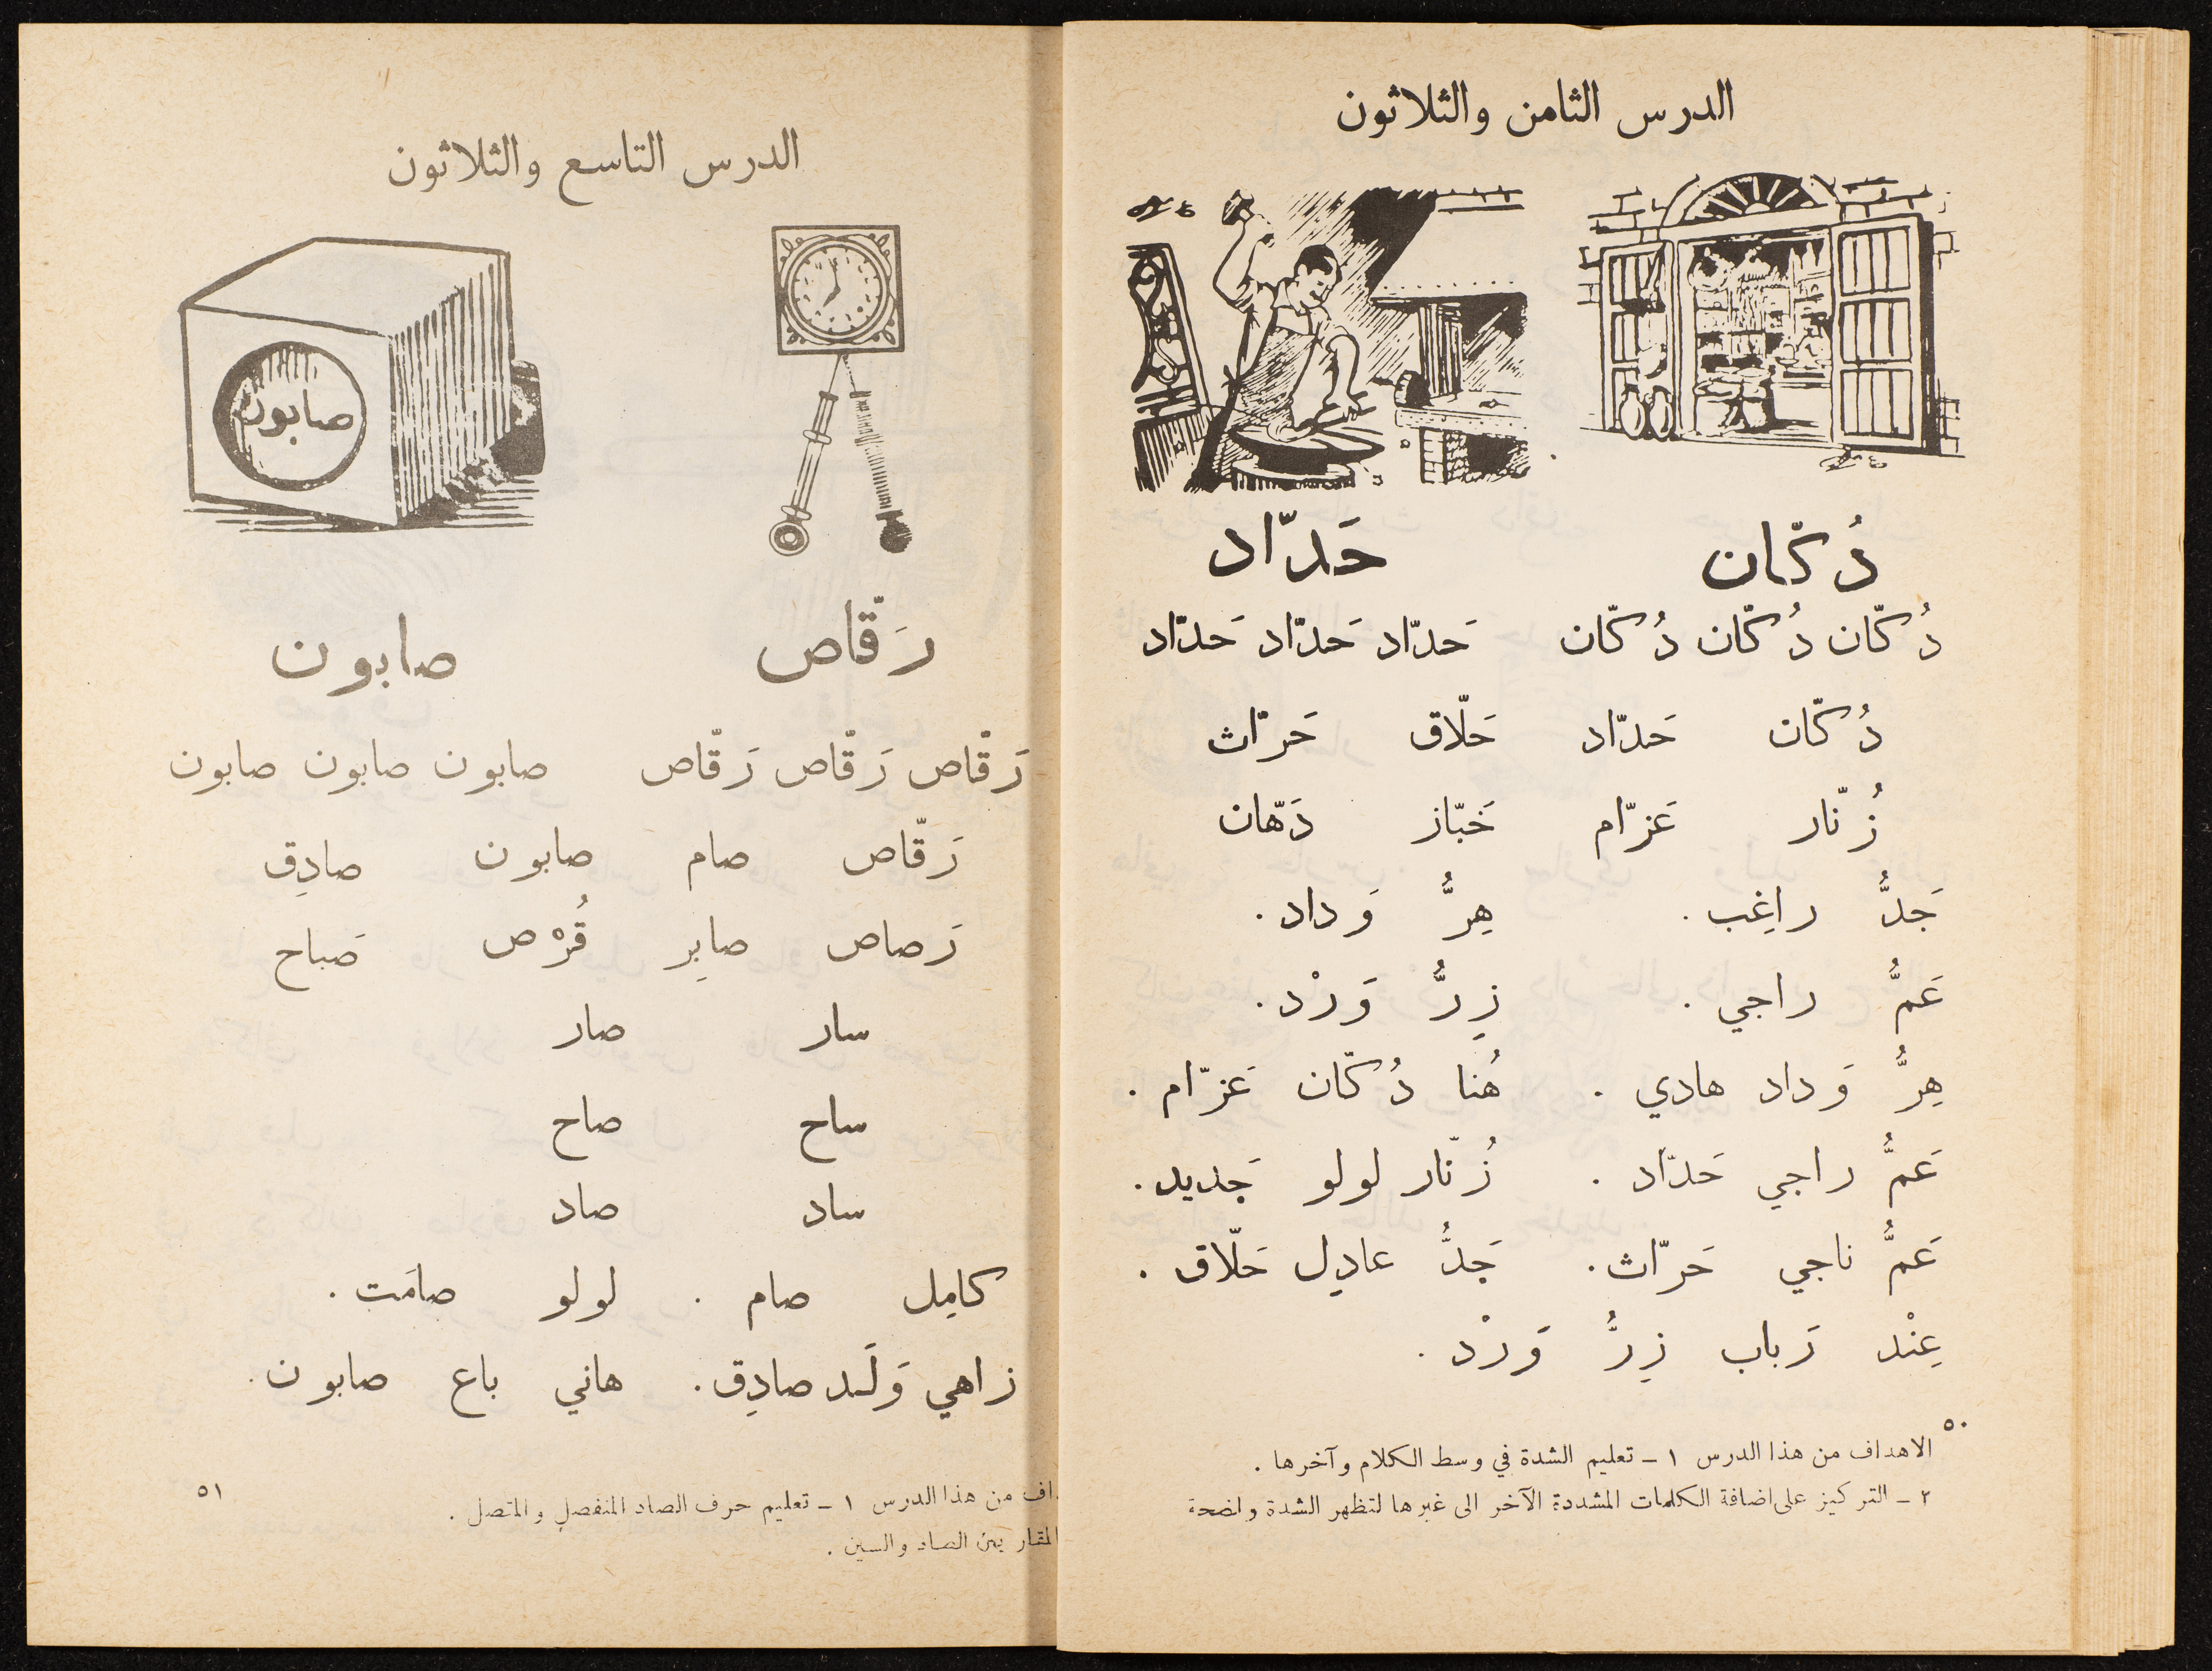 الدرس الثامن والثلاثون
دُكّان حَدّاد
دُكّان دُكّان دُكّان حَدّاد حَدّاد حَدّاد
دُكّان حَدّاد حَلّاق حَرّاث
زُنّار عَزّام خَبّاز دَهّان
جَدُّ راغِب . هِرُّ وَداد .
عَمُّ راجي . زِرُّ وَرْد .
هِرُّ وَداد هادي . هُنا دُكّان عَزّام .
عَمُّ راجي حَدّاد . زُنّار لولو جَديد .
عَمُّ ناجي حَرّاث . جَدُّ عادِل حَلّاق .
عِنْد رَباب زِرُّ وَرْد .
٥٠
الاهداف من هذا الدرس ١ – تعليم الشدة في وسط الكلام وآخرها .
٢ – التركيز على اضافة الكلمات المشددة الآخر الى غيرها لتظهر الشدة واضحة
الدرس التاسع والثلاثون
صابون
رَقّاص صابون
رَقّاص رَقّاص رَقّاص صابون صابون صابون
رَقّاص صام صابون صادِق
رَصاص صابِر قُرْص صَباح
سار صار
ساح صاح
ساد صاد
كامِل صام . لولو صامَت .
زاهي وَلَد صادِق . هاني باع صابون .
من هذا الدرس ١ – تعليم حرف الصاد المنفصل والمتصل .
بين الصاد والسين .
٥١